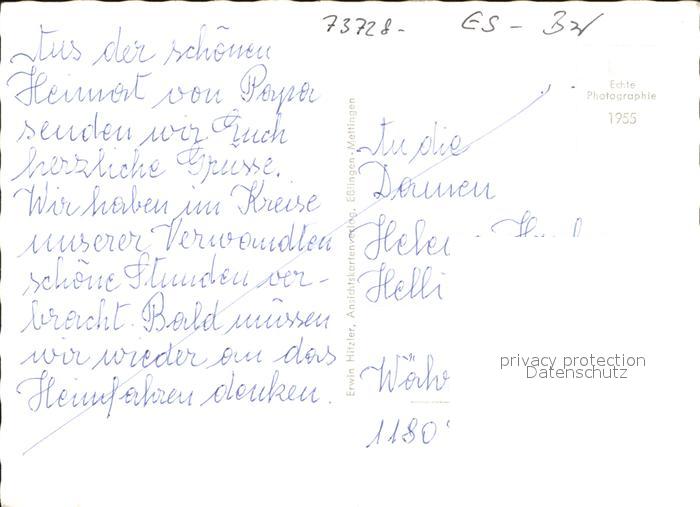 73728- ES - BW
Aus der schönen
Heimat von Papa
senden wir Euch
herzliche Grüsse.
Wir haben im Kreise
unserer Verwandten
schöne Stunden ver-
bracht. Bald müssen
wir wieder an das
Heimfahren denken.
Erwin Hitzler, Ansichtskartenverlag, Eßlingen-Mettingen
Echte
Photographie
1955
An die
Damen
Helli
1180
privacy protection
Datenschutz